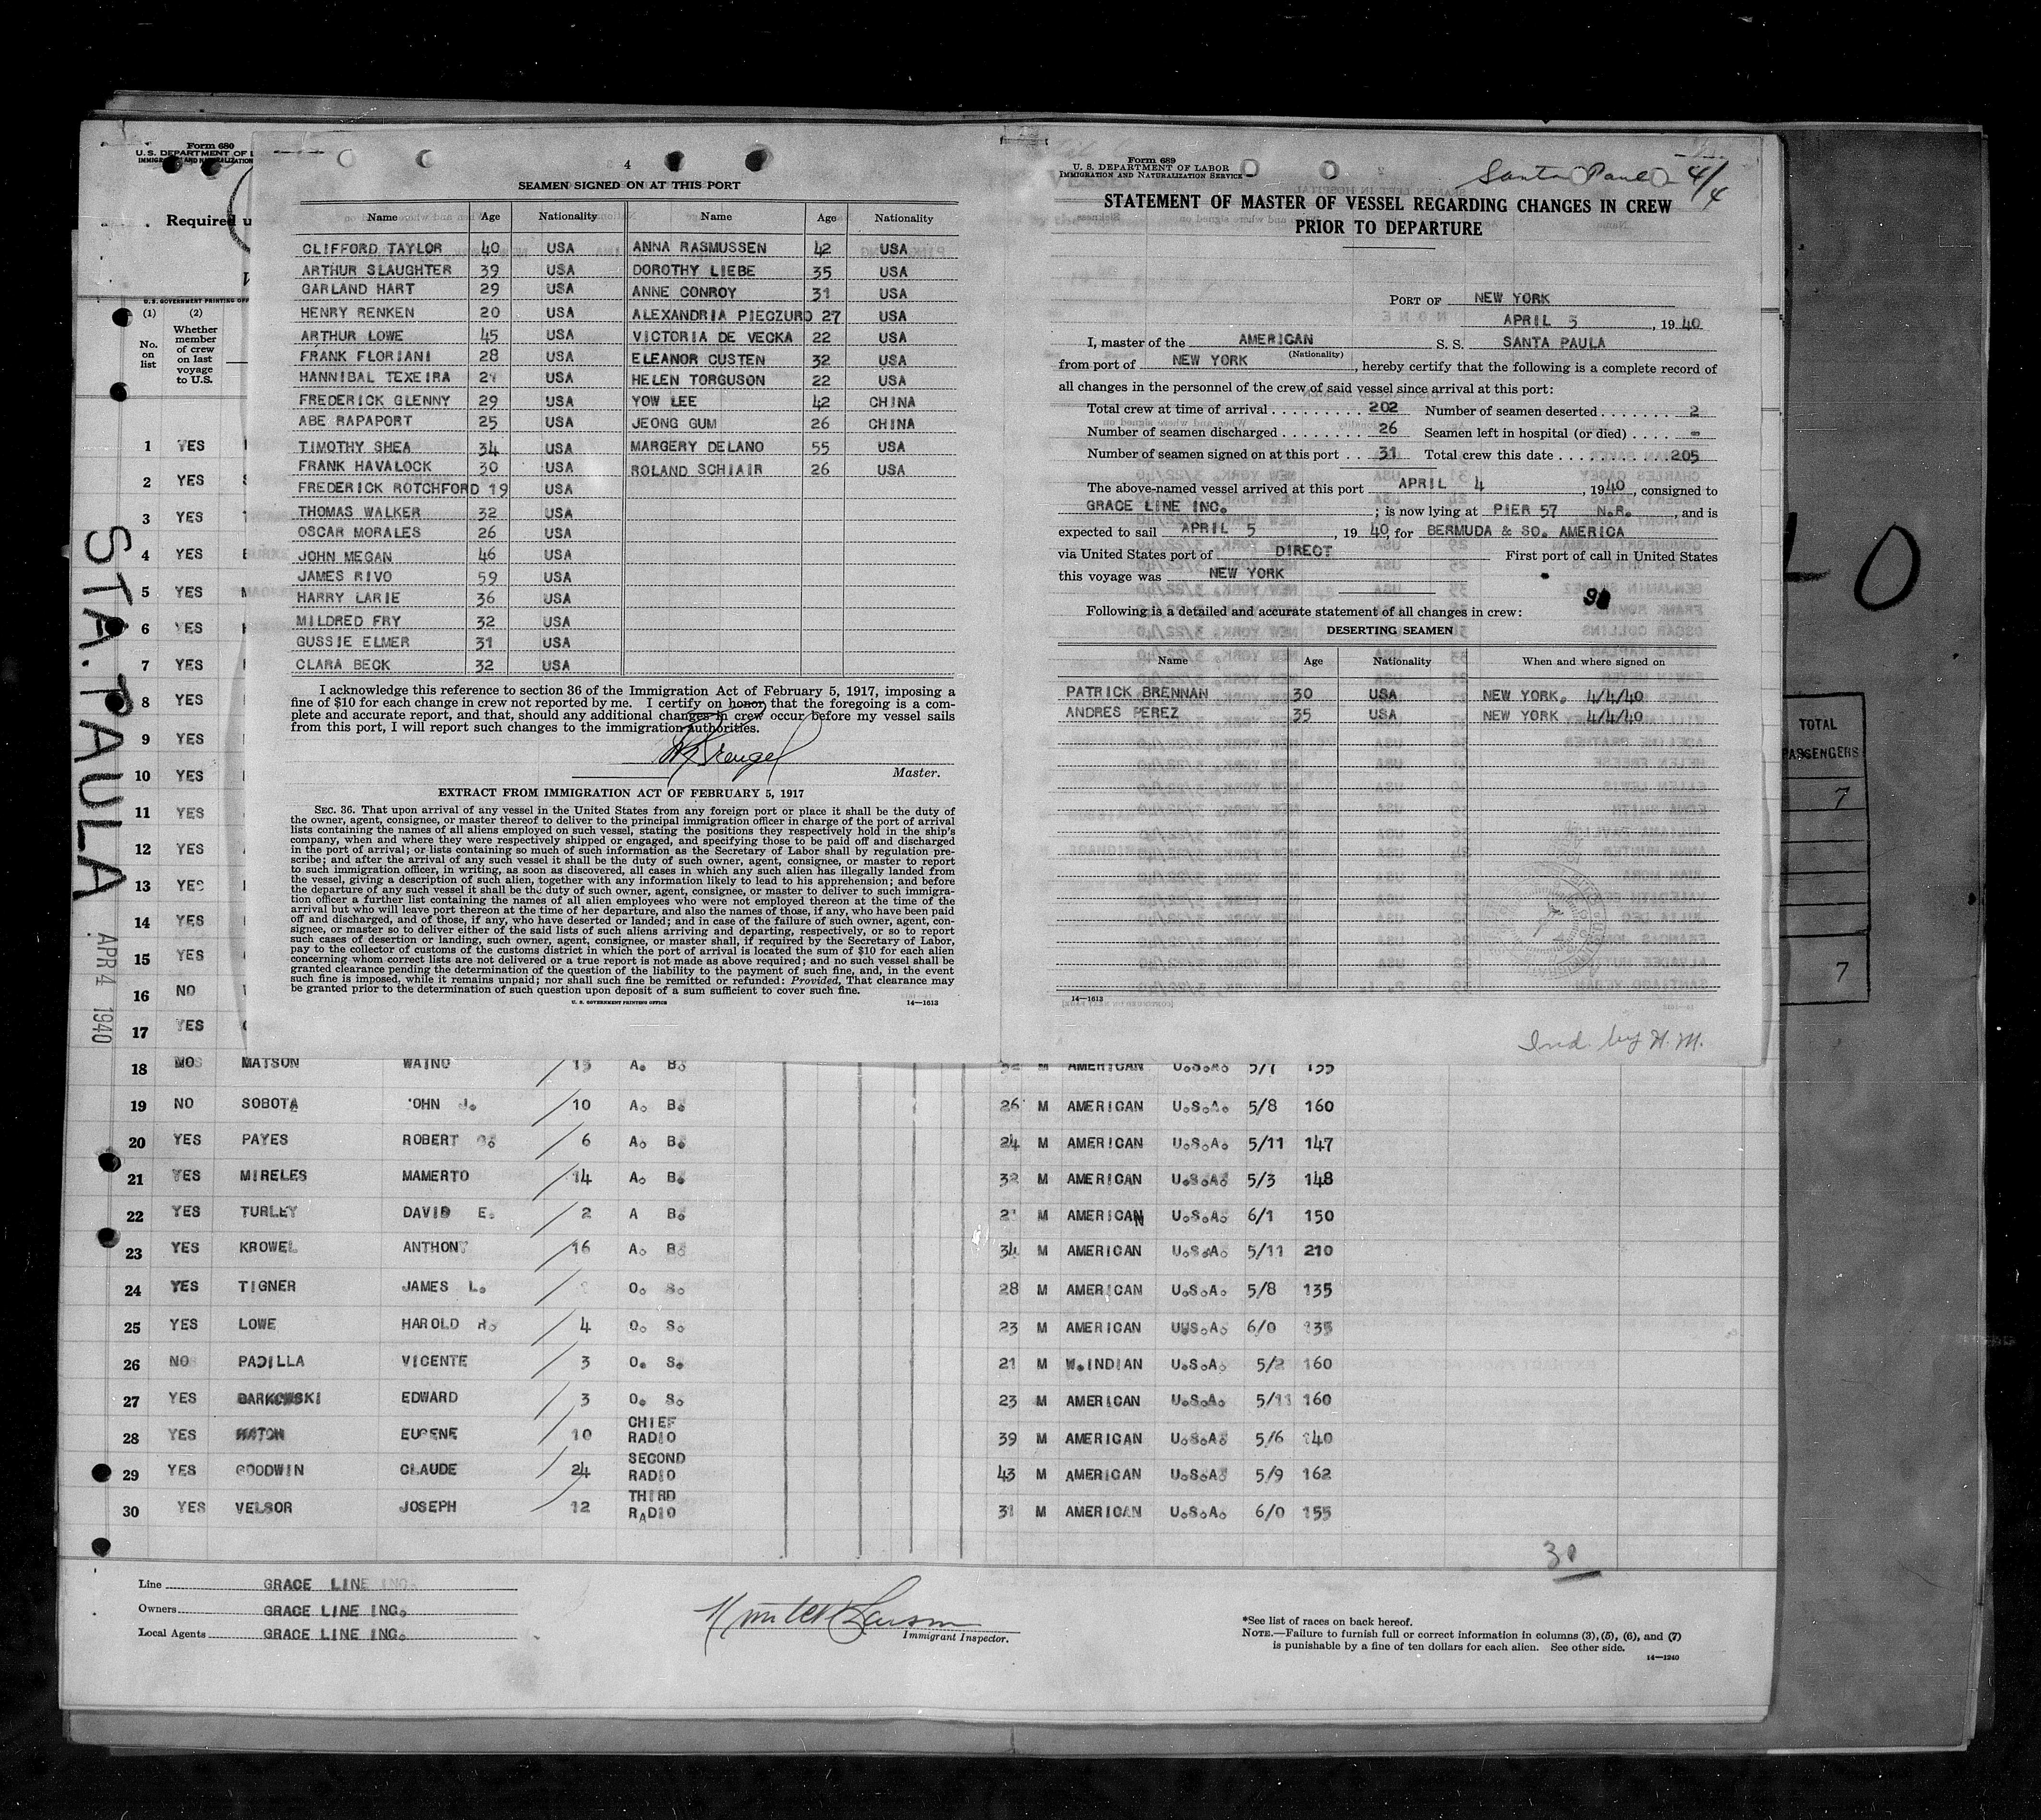 Form 680
U. S. DEPARTMENT OF L
IMMIGRATION AND NATURALIZATION
Required u
U. S. GOVERNMENT PRINTING OFF
(1) (2)
No. on list
Whether member of crew on last voyage to U.S.
STA. PAULA
APR 4 1940
4
SEAMEN SIGNED ON AT THIS PORT
Name Age Nationality Name Age Nationality
CLIFFORD TAYLOR 40 USA ANNA RASMUSSEN 42 USA
ARTHUR SLAUGHTER 39 USA DOROTHY LIEBE 35 USA
GARLAND HART 29 USA ANNE CONROY 31 USA
HENRY RENKEN 20 USA ALEXANDRIA PIECZURO 27 USA
ARTHUR LOWE 45 USA VICTORIA DE VECKA 22 USA
FRANK FLORIANI 28 USA ELEANOR CUSTEN 32 USA
HANNIBAL TEXEIRA USA HELEN TORGUSON 22 USA
FREDERICK GLENNY 29 USA YOW LEE 42 CHINA
ABE RAPAPORT 25 USA JEONG GUM 26 CHINA
TIMOTHY SHEA 34 USA MARGERY DELANO 55 USA
FRANK HAVALOCK 30 USA ROLAND SCHIAIR 26 USA
FREDERICK ROTCHFORD 19 USA
THOMAS WALKER 32 USA
OSCAR MORALES 26 USA
JOHN MEGAN 46 USA
JAMES RIVO 59 USA
HARRY LARIE 36 USA
MILDRED FRY 32 USA
GUSSIE ELMER 31 USA
CLARA BECK 32 USA
I acknowledge this reference to section 36 of the Immigration Act of February 5, 1917, imposing a
fine of $10 for each change in crew not reported by me. I certify on honor that the foregoing is a com-
plete and accurate report, and that, should any additional changes in crew occur before my vessel sails
from this port, I will report such changes to the immigration authorities.
Master.
EXTRACT FROM IMMIGRATION ACT OF FEBRUARY 5, 1917
SEC. 36. That upon arrival of any vessel in the United States from any foreign port or place it shall be the duty of
the owner, agent, consignee, or master thereof to deliver to the principal immigration officer in charge of the port of arrival
lists containing the names of all aliens employed on such vessel, stating the positions they respectively hold in the ship's
company, when and where they were respectively shipped or engaged, and specifying those to be paid off and discharged
in the port of arrival; or lists containing so much of such information as the Secretary of Labor shall by regulation pre-
scribe; and after the arrival of any such vessel it shall be the duty of such owner, agent, consignee, or master to report
to such immigration officer, in writing, as soon as discovered, all cases in which any such alien has illegally landed from
the vessel, giving a description of such alien, together with any information likely to lead to his apprehension; and before
the departure of any such vessel it shall be the duty of such owner, agent, consignee, or master to deliver to such immigra-
tion officer a further list containing the names of all alien employees who were not employed thereon at the time of the
arrival but who will leave port thereon at the time of her departure, and also the names of those, if any, who have been paid
off and discharged, and of those, if any, who have deserted or landed; and in case of the failure of such owner, agent, con-
signee, or master so to deliver either of the said lists of such aliens arriving and departing, respectively, or so to report
such cases of desertion or landing, such owner, agent, consignee, or master shall, if required by the Secretary of Labor,
pay to the collector of customs of the customs district in which the port of arrival is located the sum of $10 for each alien
concerning whom correct lists are not delivered or a true report is not made as above required; and no such vessel shall be
granted clearance pending the determination of the question of the liability to the payment of such fine, and, in the event
such fine is imposed, while it remains unpaid; nor shall such fine be remitted or refunded: Provided, That clearance may
be granted prior to the determination of such question upon deposit of a sum sufficient to cover such fine.
U. S. GOVERNMENT PRINTING OFFICE 14—1613
Form 689
U. S. DEPARTMENT OF LABOR
IMMIGRATION AND NATURALIZATION SERVICE
Santa Paula 4/4
STATEMENT OF MASTER OF VESSEL REGARDING CHANGES IN CREW
PRIOR TO DEPARTURE
PORT OF NEW YORK
APRIL 3, 1940
I, master of the AMERICAN S. S. SANTA PAULA
(Nationality)
from port of NEW YORK, hereby certify that the following is a complete record of
all changes in the personnel of the crew of said vessel since arrival at this port:
Total crew at time of arrival 202 Number of seamen deserted 2
Number of seamen discharged 26 Seamen left in hospital (or died) -
Number of seamen signed on at this port 31 Total crew this date 205
The above-named vessel arrived at this port APRIL 4, 1940, consigned to
GRACE LINE INC.; is now lying at PIER 57 N.R., and is
expected to sail APRIL 5, 1940, for BERMUDA & SO. AMERICA
via United States port of DIRECT First port of call in United States
this voyage was NEW YORK.
Following is a detailed and accurate statement of all changes in crew:
DESERTING SEAMEN
Name Age Nationality When and where signed on
PATRICK BRENNAN 30 USA NEW YORK. 4/4/40
ANDRES PEREZ 35 USA NEW YORK 4/4/40
14—1613
Ind. by H. M.
TOTAL
PASSENGERS
7
7
1 YES
2 YES
3 YES
4 YES
5 YES
6 YES
7 YES
8 YES
9 YES
10 YES
11 YES
12 YES
13 YES
14 YES
15 YES
16 NO
17 YES
18 NO MATSON WAINO 15 A. B. M AMERICAN U.S.A. 5/7 155
19 NO SOBOTA JOHN J. 10 A. B. 26 M AMERICAN U.S.A. 5/8 160
20 YES PAYES ROBERT 6 A. B. 24 M AMERICAN U.S.A. 5/11 147
21 YES MIRELES MAMERTO 14 A. B. 32 M AMERICAN U.S.A. 5/3 148
22 YES TURLEY DAVID E. 2 A B. M AMERICAN U.S.A. 6/1 150
23 YES KROWEL ANTHONY 16 A. B. 34 M AMERICAN U.S.A. 5/11 210
24 YES TIGNER JAMES L. O. S. 28 M AMERICAN U.S.A. 5/8 135
25 YES LOWE HAROLD R. 4 O. S. 23 M AMERICAN U.S.A. 6/0 135
26 NO PADILLA VICENTE 3 O. S. 21 M W.INDIAN U.S.A. 5/2 160
27 YES EDWARD 3 O. S. 23 M AMERICAN U.S.A. 5/11 160
28 YES EUGENE 10 CHIEF RADIO 39 M AMERICAN U.S.A. 5/6 140
29 YES GOODWIN CLAUDE 24 SECOND RADIO 43 M AMERICAN U.S.A. 5/9 162
30 YES VELSOR JOSEPH 12 THIRD RADIO 31 M AMERICAN U.S.A. 6/0 155
30
Line GRACE LINE INC.
Owners GRACE LINE INC.
Local Agents GRACE LINE INC.
Immigrant Inspector.
*See list of races on back hereof.
NOTE.—Failure to furnish full or correct information in columns (3), (5), (6), and (7)
is punishable by a fine of ten dollars for each alien. See other side.
14—1240